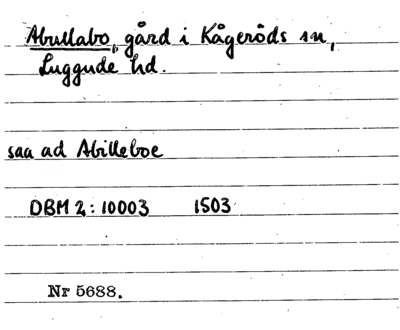 Abullabo, gård i Kågeröds sn,
Luggude hd.
saa ad Abilleboe
DBM 2:10003 1503
Nr 5688.